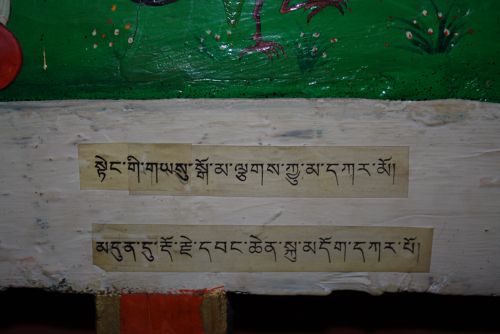 སྟེང་གི་གཡསུ་སྒོ་མ་ལྕགས་ཀྱུ་མ་དཀར་མོ།
མདུན་དུ་རྡོ་རྗེ་དབང་ཆེན་སྐུ་མདོག་དཀར་པོ།